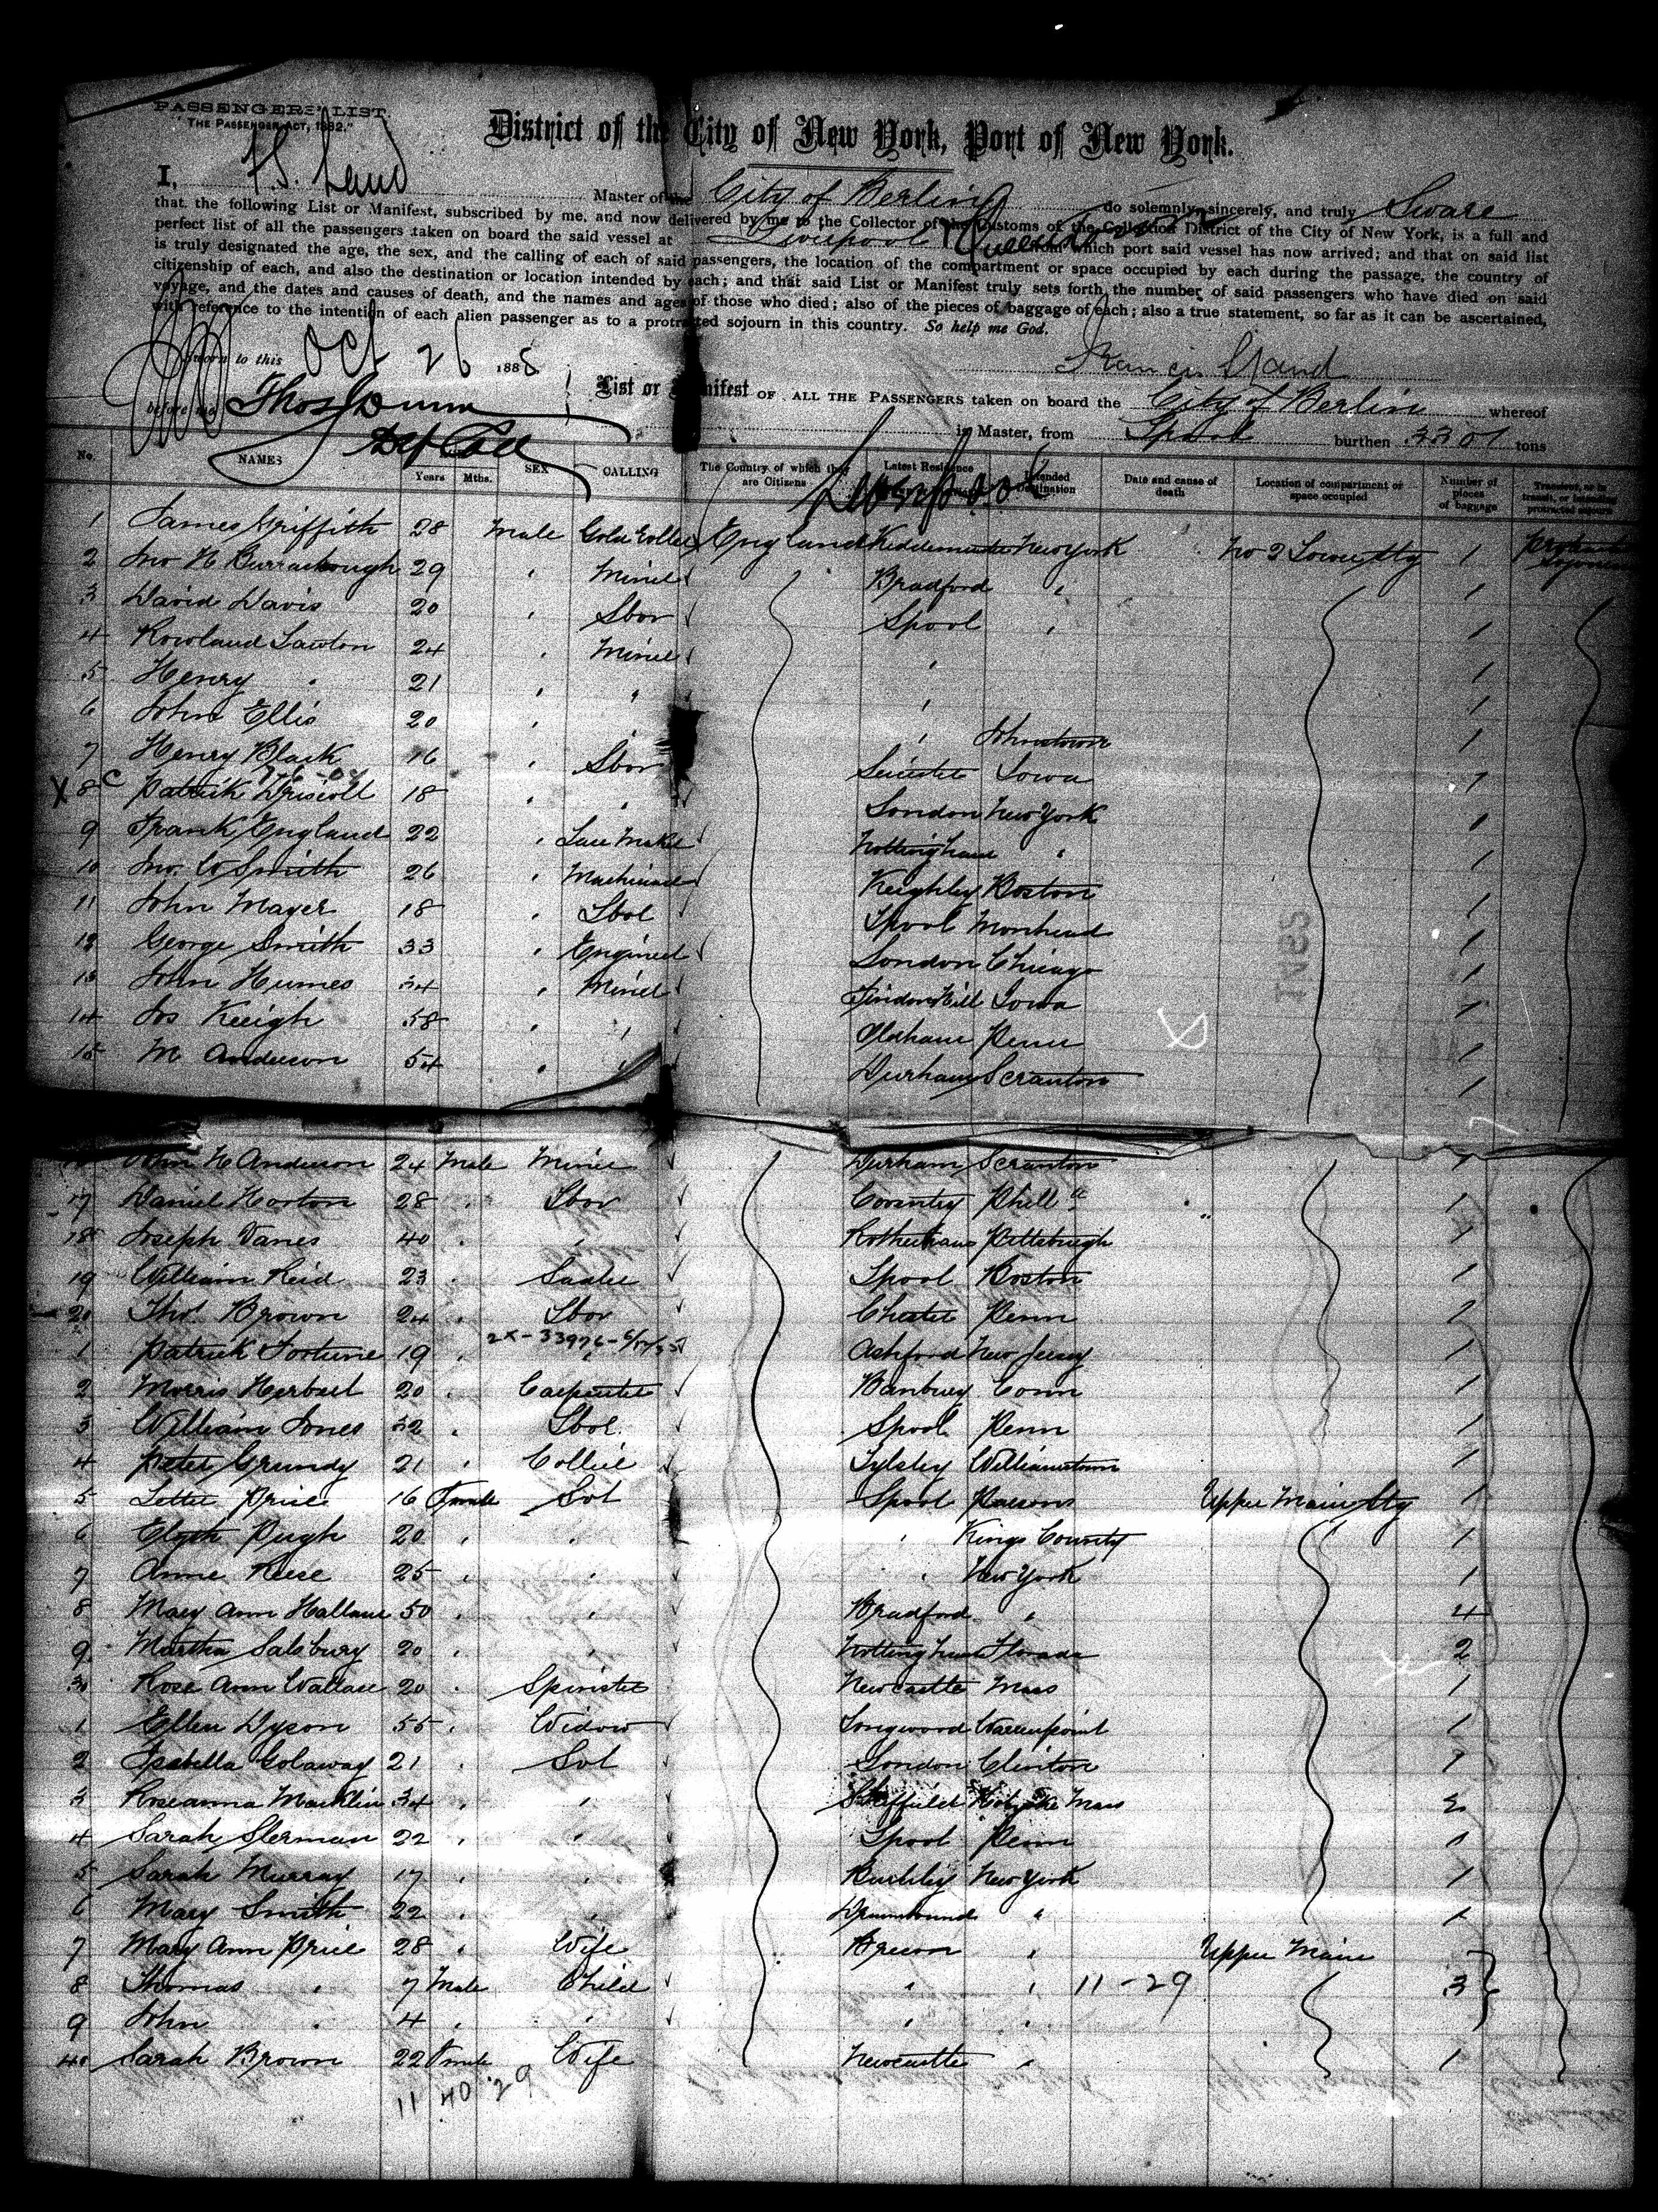 PASSENGERS' LIST.
"THE PASSENGER ACT, 1882."
District of the City of New York, Port of New York.
I, F.S. Land Master of the City of Berlin do solemnly, sincerely, and truly Sware
that the following List or Manifest, subscribed by me, and now delivered by me to the Collector of the Customs of the Collection District of the City of New York, is a full and
perfect list of all the passengers taken on board the said vessel at Liverpool Queenstown from which port said vessel has now arrived; and that on said list
is truly designated the age, the sex, and the calling of each of said passengers, the location of the compartment or space occupied by each during the passage, the country of
citizenship of each, and also the destination or location intended by each; and that said List or Manifest truly sets forth the number of said passengers who have died on said
voyage, and the dates and causes of death, and the names and ages of those who died; also of the pieces of baggage of each; also a true statement, so far as it can be ascertained,
with reference to the intention of each alien passenger as to a protracted sojourn in this country. So help me God.
Sworn to this Oct 26 1888
Francis S Land
before me Thos J Dunn
Dy Coll
List or Manifest OF ALL THE PASSENGERS taken on board the City of Berlin whereof
is Master, from Lpool burthen 3301 tons
Liverpool
No. NAMES Years Mths. SEX CALLING The Country of which they are Citizens Latest Residence Intended Destination Date and cause of death Location of compartment or space occupied Number of pieces of baggage Transient, or in transit, or intending protracted sojourn
1 James Griffith 28 Male England Kidderminster New York No 2 Lower Stg 1 protracted sojourn
2 Jno H Burrabough 29 " Miner Bradford " 1
3 David Davis 20 " Lbor Lpool " 1
4 Rowland Lawton 24 " Miner " 1
5 Henry " 21 " " " 1
6 John Ellis 20 " " " Johnstown 1
7 Henry Black 16 " Lbor Leicester Iowa 1
X 8 C Patrick Driscoll 18 " " London New York 1
9 Frank England 22 " Lace Maker Nottingham " 1
10 Jno. W Smith 26 " Machinist Keighley Boston 1
11 John Mayer 18 " Lbor Lpool Morehead 1
12 George Smith 33 " Engineer London Chicago 1
13 John Humes 34 " Miner Tindon Hill Iowa 1
14 Jos Keigh 58 " " Oldham Penn 1
15 M Anderson 54 " " Durham Scranton 1
16 John H Anderson 24 Male Miner Durham Scranton 1
17 Daniel Horton 28 " Lbor Coventry Phill a 1
18 Joseph Vanes 40 " " Rotherham Pittsburgh 1
19 William Reid 23 " Sadler Lpool Boston 1
20 Thos Brown 24 " Lbor Chester Penn 2
1 Patrick Fortune 19 " " Ashford New Jersey 1
2 Morris Herbert 20 " Carpenter Banbury Conn 1
3 William Jones 32 " Lbor Lpool Penn 1
4 Peter Grundy 21 " Collier Tylsley Williamstown 1
5 Lettie Price 16 Female Svt Lpool Parsons Upper Main Stg 1
6 Elyth Pugh 20 " " " Kings County 1
7 Anne Reese 25 " " " New York 1
8 Mary Ann Hallam 50 " " Bradford " 4
9 Martha Salsbury 20 " " Nottingham Florada 2
30 Rose Ann Wallace 20 " Spinster Newcastle Mass 1
1 Ellen Dyson 55 " Widow Longwood Warrenpoint 1
2 Isabella Golaway 21 " Svt London Clinton 1
3 Roseanna Macklin 34 " " Sheffield Holyoke Mass 2
4 Sarah Slerman 22 " " Lpool Penn 1
5 Sarah Murray 17 " " New York 1
6 Mary Smith 22 " " " 1
7 Mary Ann Price 28 " Wife Brecon " Upper Main
8 Thomas " 7 Male Child " " 11-29 3
9 John " 4 " " " "
40 Sarah Brown 22 Female Wife Newcastle " 1
11 40 29